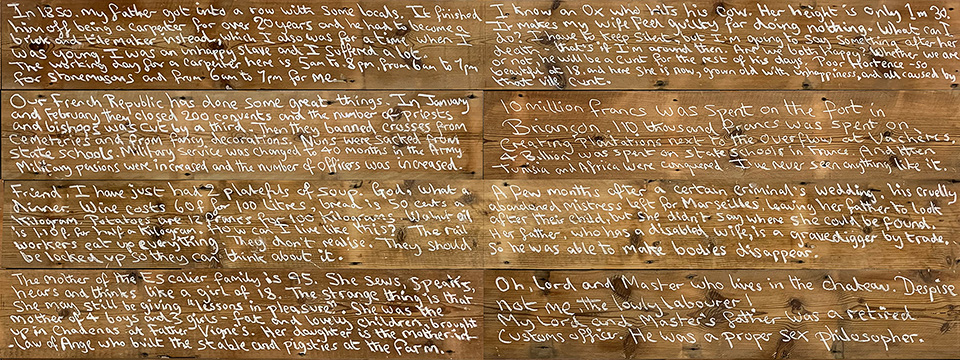 In 1850, my father got into a row with some locals. It finished
him off being a carpenter for over 20 years and he had to become a
brick and tile maker instead, which I also was for a time.
Let's say I was an unhappy slave and I suffered a lot.
The working day for a carpenter here is 5am to 8pm, from 6am to 7pm
for stonemasons and from 6am to 7pm for me.
I know an Ox who hits his cow. Her height is only 1m 30.
It makes my wife feel guilty for doing nothing. What can I
do? I have to keep silent but I'm going to say something after her
death, that's if I'm around then. And we both pray. Whether we do
or not, he will be a cunt for the rest of his days. Poor Hortence so
beautiful at 18, and here she is now, grown old with unhappiness, and all caused by
that vile cunt.
Our French Republic has done some great things. In January
and February they closed 200 convents and the number of priests
and bishops was cut by a third. Then they banned crosses from
cemeteries and from fancy decorations. Nuns were sacked from
State schools. Military service was changed to 40 months in the Army,
Military pensions were increased and the number of officers was increased.
10 million francs was spent on the fort in
Briançon. 110 thousand francs was spent on
creating plantations next to the overflow and elsewhere.
4 Billion was spent on state schools in France. And then
Tunisia and Africa were conquered. I've never seen anything like it.
Friend I have just had 2 platefuls of soup. God, what a
dinner. Wine costs 60f for 100 litres, bread is 50 cents a
kilogram. Potatoes are 12 francs for 100 kilograms. Walnut oil
is 1.10f for half a kilogram. How can I live like this? The rail
workers eat up everything. They don't realise. They should
be locked up so they can think about it.
A few months after a certain criminal's wedding, his cruelly
abandoned mistress left for Marseilles leaving her father to look
after their child, but she didn't say where she could be found.
Her father, who has a disabled wife, is a gravedigger by trade.
So he was able to make bodies disappear.
The mother of the Escalier family is 95. She sews, speaks,
hears and thinks like a girl of 18. The strange thing is that
She may still be giving "lessons in pleasure". She was the
mother of 4 boys and 2 girls - fat and lively children, brought
up in Chadenas at Father Vigne's. Her daughter is the mother in
Law of Ange who built the stable and pigsties at the farm.
Oh, Lord and Master who lives in the chateau. Despise
not me the lowly labourer!
My Lord and Master's father was a retired
Customs officer. He was a proper sex philosopher.